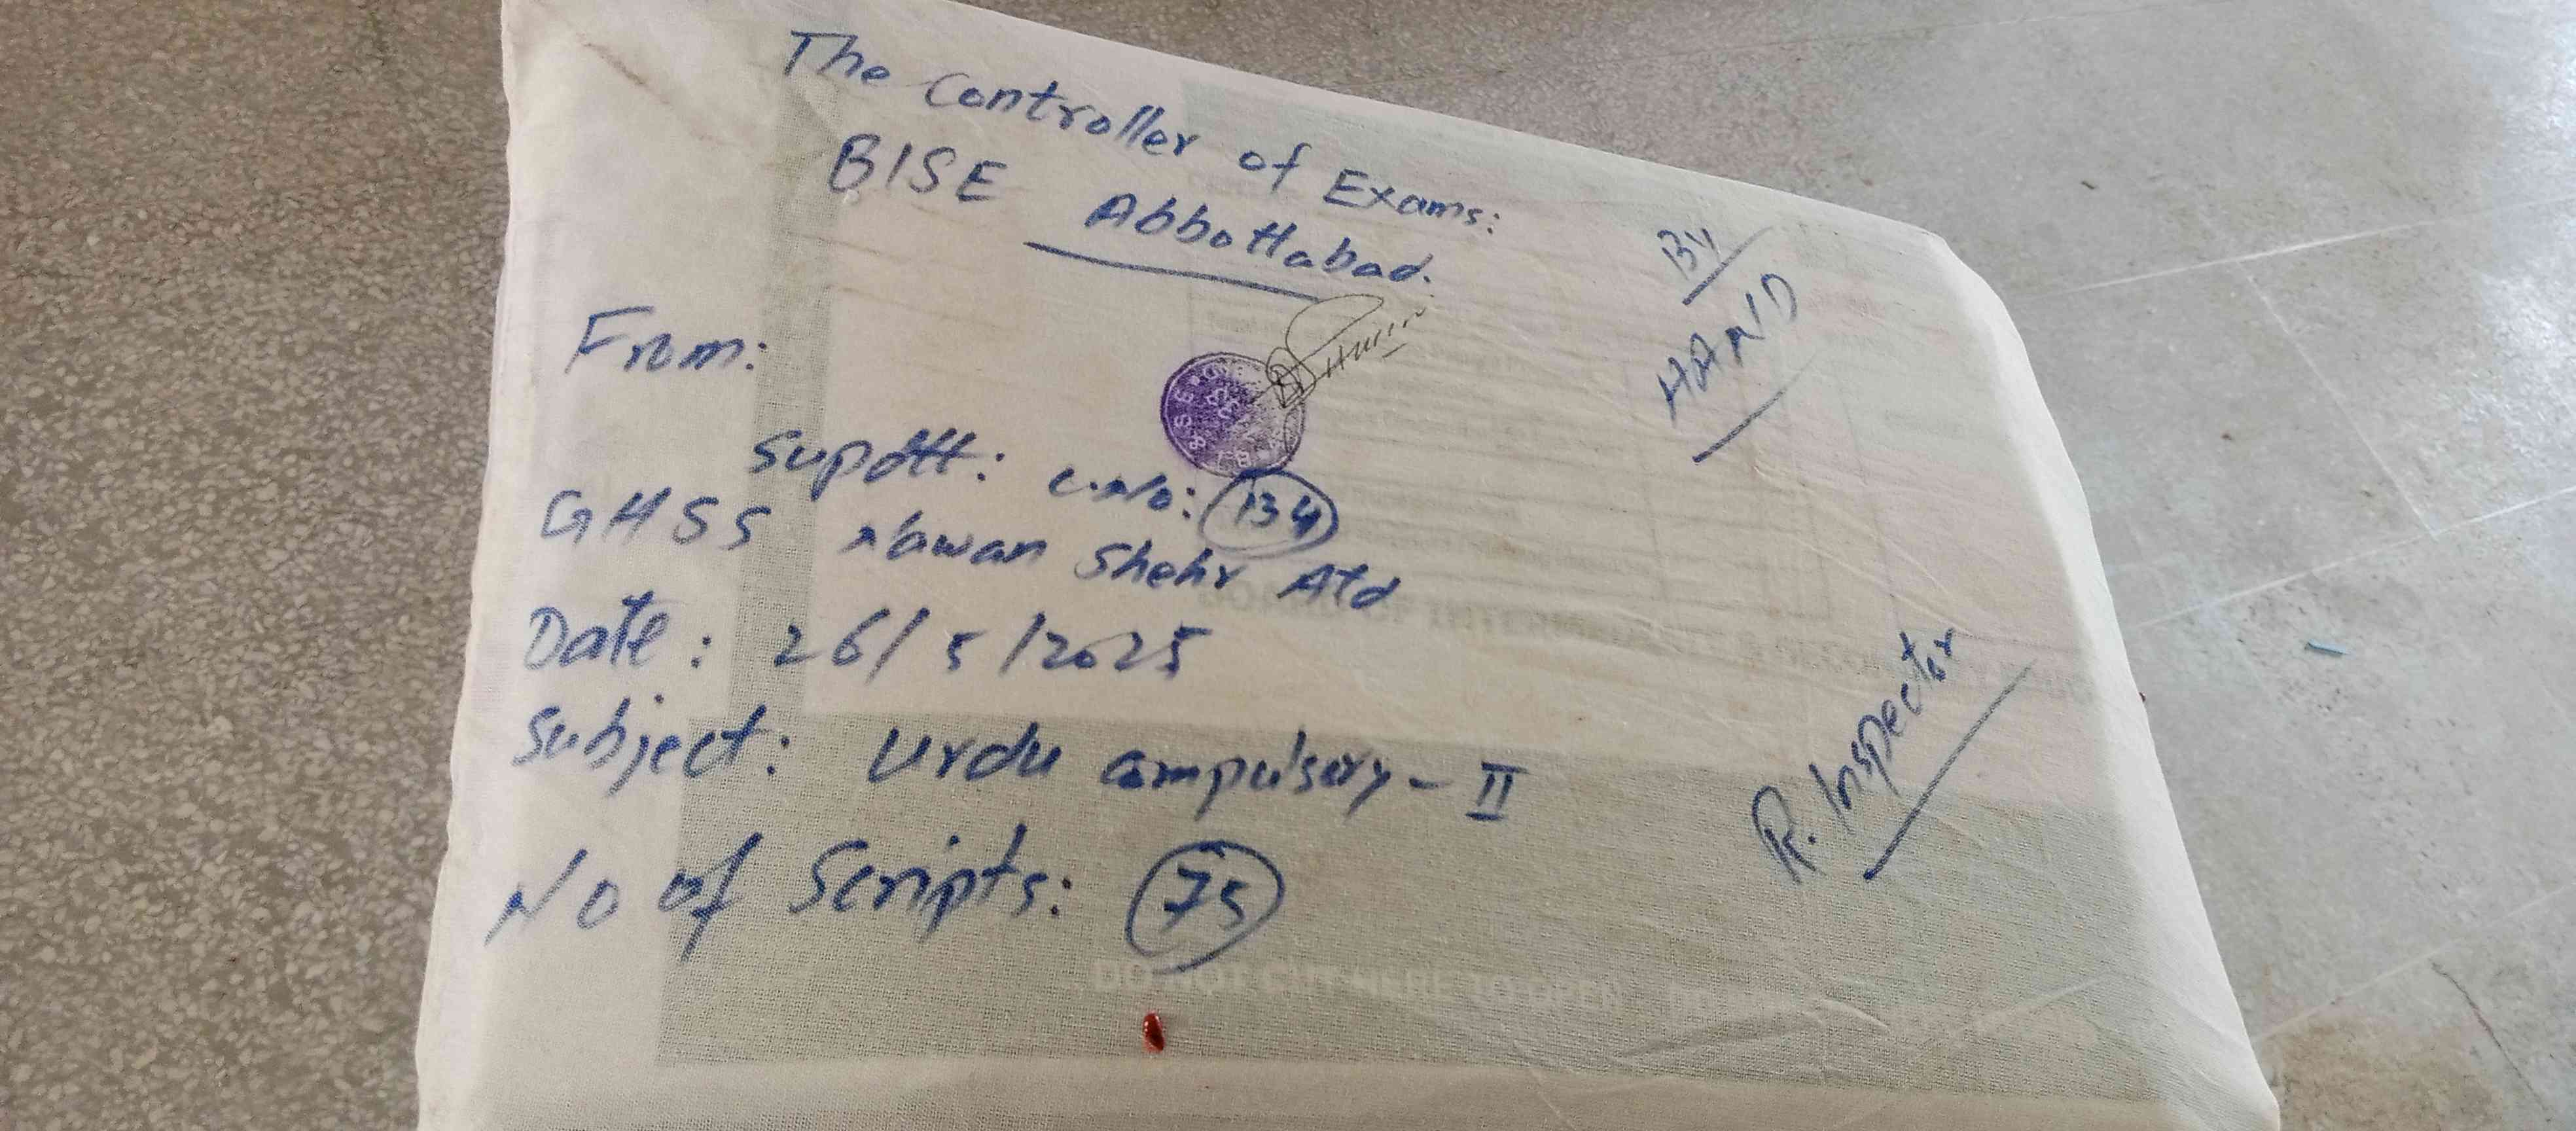 The Controller of Exams:
BISE Abbottabad.
By
HAND
From:
Supdtt: C.No: 134
GHSS Nawan Shehr Atd
Date: 26/5/2025
Subject: Urdu compulsory - II
No of Scripts: 75
R. Inspector
DO NOT CUT HERE TO OPEN